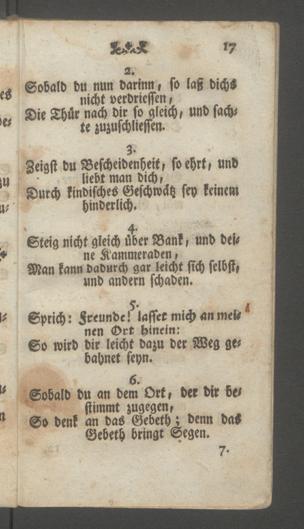 17
2.
Sobald du nun darinn, so laß dichs
nicht verdriessen,
Die Thür nach dir so gleich, und sach-
te zuzuschliessen.
3.
Zeigst du Bescheidenheit, so ehrt, und
liebt man dich,
Durch kindisches Geschwätz sey keinem
hinderlich.
4.
Steig nicht gleich über Bank, und dei-
ne Kammeraden,
Man kann dadurch gar leicht sich selbst,
und andern schaden.
5.
Sprich: Freunde! lasset mich an mei-
nen Ort hinein:
So wird dir leicht dazu der Weg ge-
bahnet seyn.
6.
Sobald du an dem Ort, der dir be-
stimmt zugegen,
So denk an das Gebeth; denn das
Gebeth bringt Segen.
7.